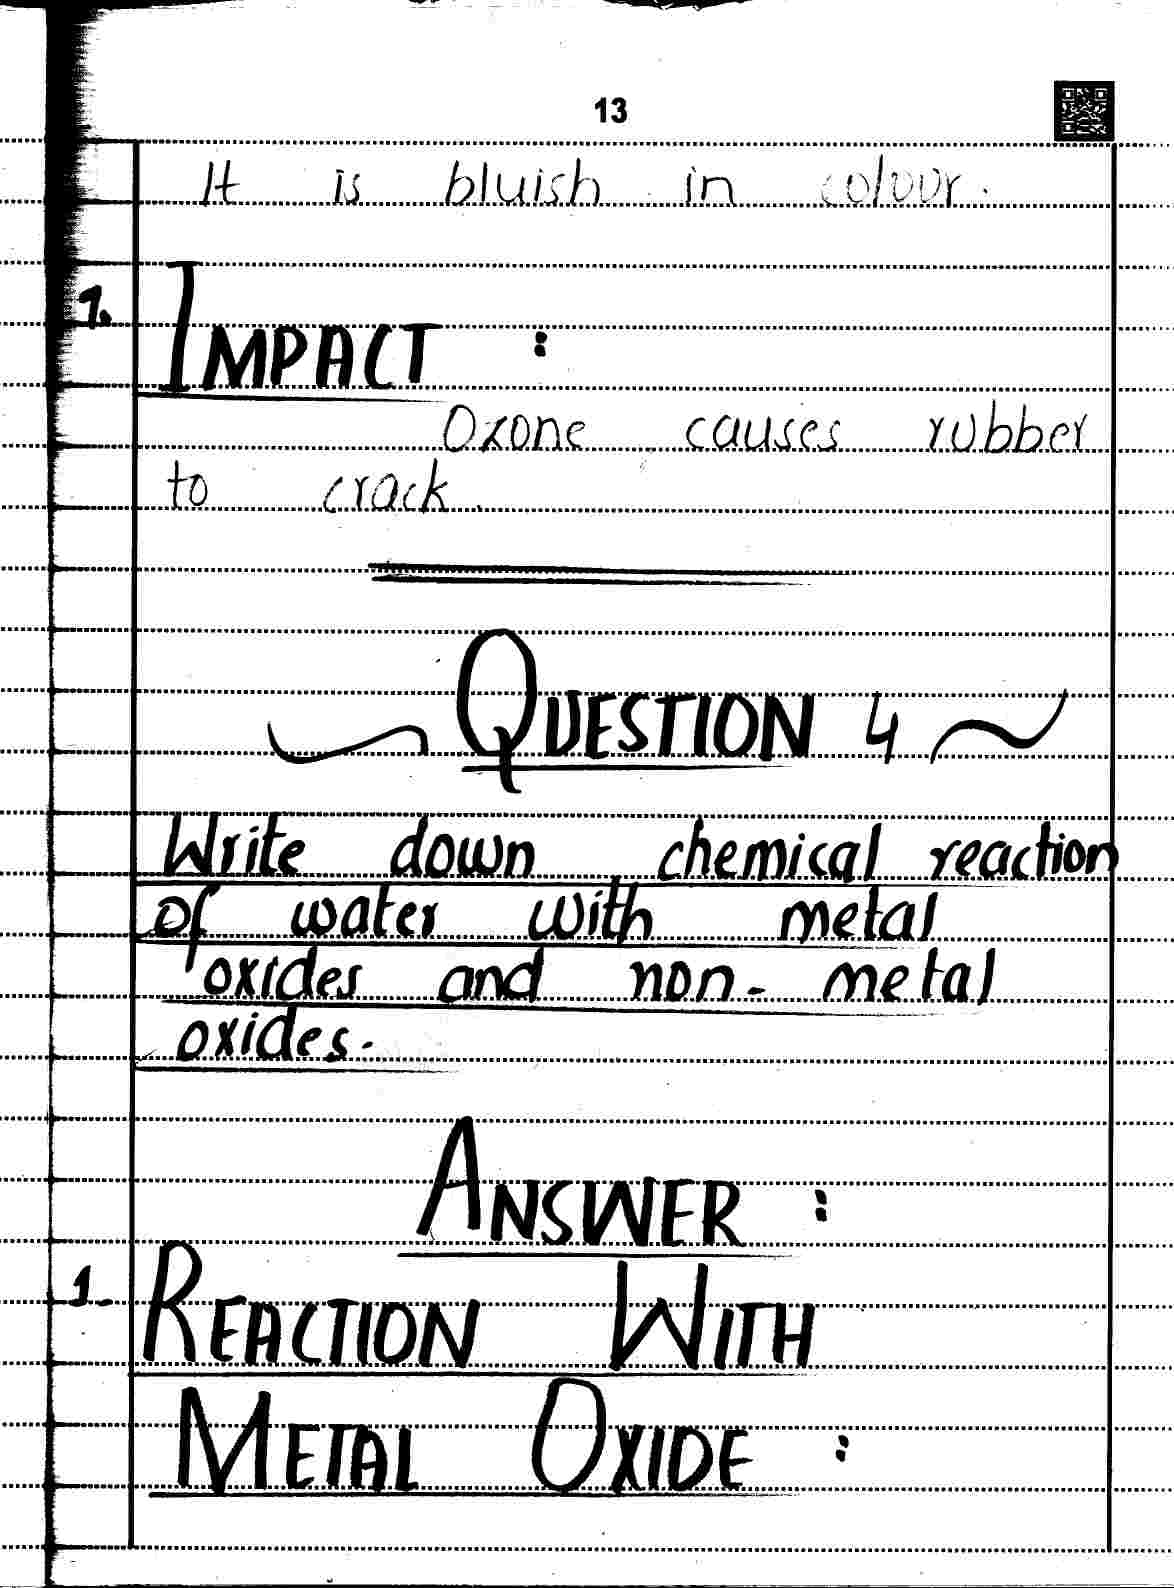 13
It is bluish in colour.
7.
IMPACT :
Ozone causes rubber
to crack.
QUESTION 4
Write down chemical reaction
of water with metal
oxides and non-metal
oxides.
ANSWER :
1. REACTION WITH
METAL OXIDE :